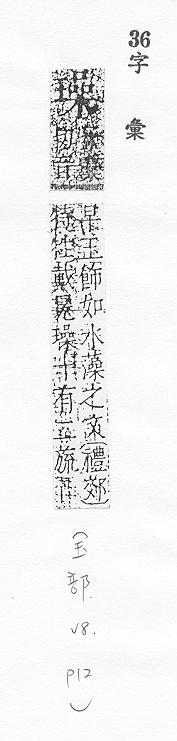 36
字彙
璪
切音
玉飾如水藻之文(禮郊
特牲戴冕璪十有二旒
(玉部. v8. p12)